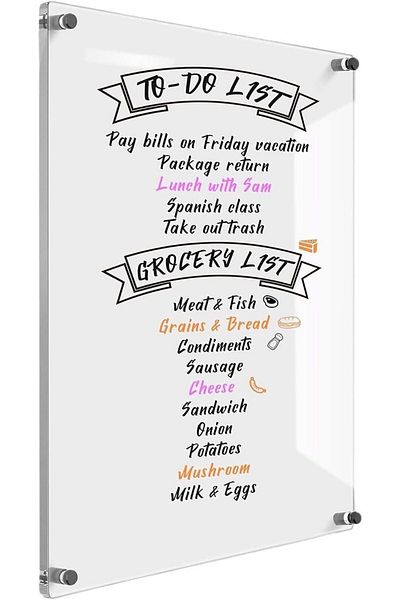 TO-DO LIST
Pay bills on Friday vacation
Package return
Lunch with Sam
Spanish class
Take out trash
GROCERY LIST
Meat & Fish
Grains & Bread
Condiments
Sausage
Cheese
Sandwich
Onion
Potatoes
Mushroom
Milk & Eggs